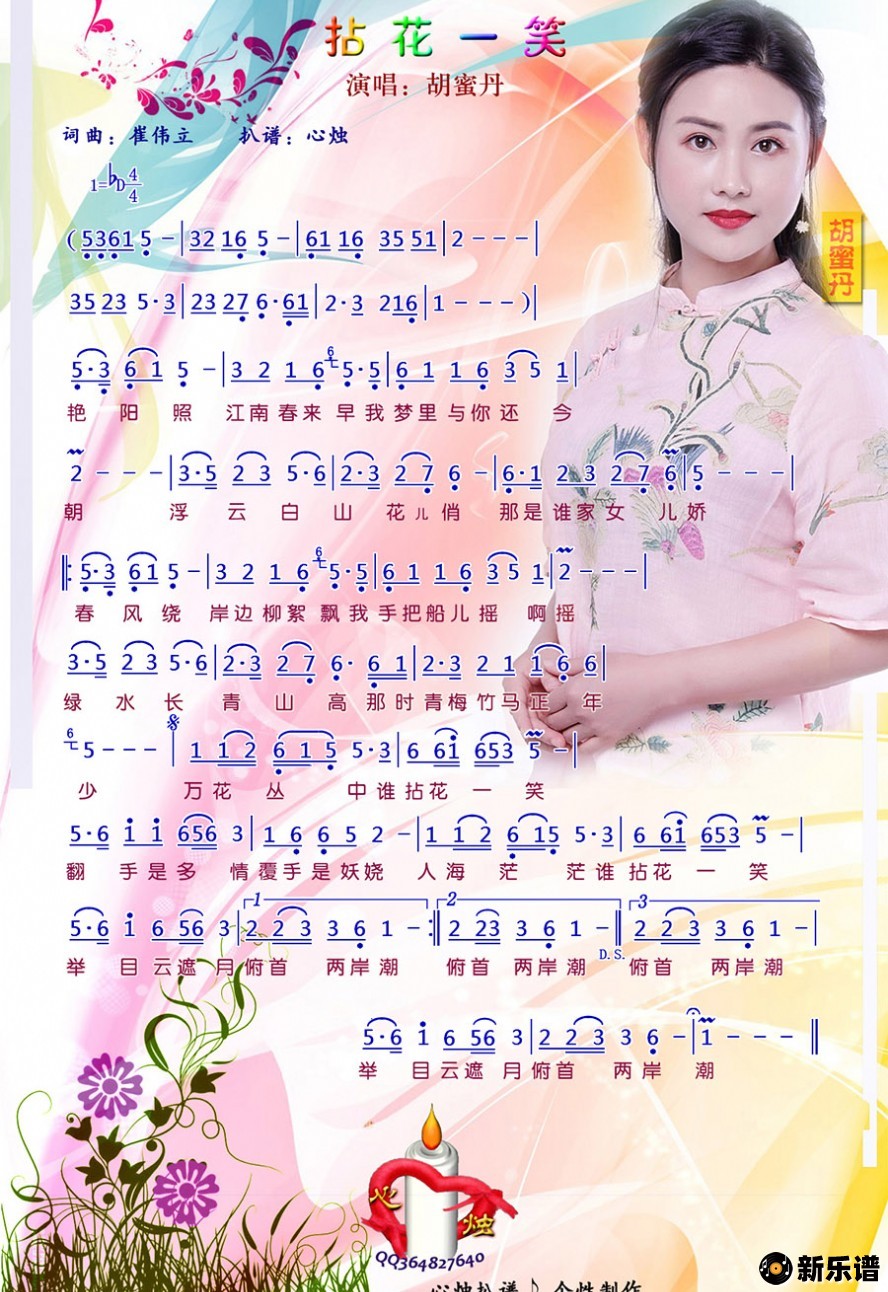 拈花一笑
演唱：胡蜜丹
词曲：崔伟立 扒谱：心烛
1=♭D 4/4
胡蜜丹
(5361 5 - | 32 16 5 - | 61 16 35 51 | 2 - - - |
35 23 5·3 | 23 27 6·61 | 2·3 216 | 1 - - - ) |
5·3 61 5 - | 3 2 1 6 6 5·5 | 6 1 1 6 3 5 1 |
艳 阳 照 江南春来 早我梦里与你还 今
2 - - - | 3·5 2 3 5·6 | 2·3 2 7 6 - | 6·1 2 3 2 7 6 | 5 - - - |
朝 浮 云 白 山 花儿俏 那是谁家女 儿娇
‖: 5·3 61 5 - | 3 2 1 6 6 5·5 | 6 1 1 6 3 5 1 | 2 - - - |
春 风 绕 岸边柳絮 飘我手把船儿摇 啊摇
3·5 2 3 5·6 | 2·3 2 7 6· 6 1 | 2·3 2 1 1 6 6 |
绿 水 长 青 山 高 那时青梅竹马正 年
6 5 - - - | 1 1 2 6 1 5 5·3 | 6 6i 653 5 - |
少 万花 丛 中谁拈花 一 笑
5·6 i i 656 3 | 1 6 6 5 2 - | 1 1 2 6 15 5·3 | 6 6i 653 5 - |
翻 手是多 情覆手是妖娆 人海 茫 茫谁拈花 一 笑
1 2 3
5·6 i 6 56 3 | 2 2 3 3 6 1 - :‖ 2 23 3 6 1 - ‖ 2 2 3 3 6 1 - |
D.S.
举 目云遮 月俯首 两岸潮 俯首 两岸潮 俯首 两岸潮
5·6 i 6 56 3 | 2 2 3 3 6 - | 1 - - - ‖
举 目云遮 月俯首 两岸 潮
心烛
QQ364827640
心烛扒谱♪个性制作
新乐谱